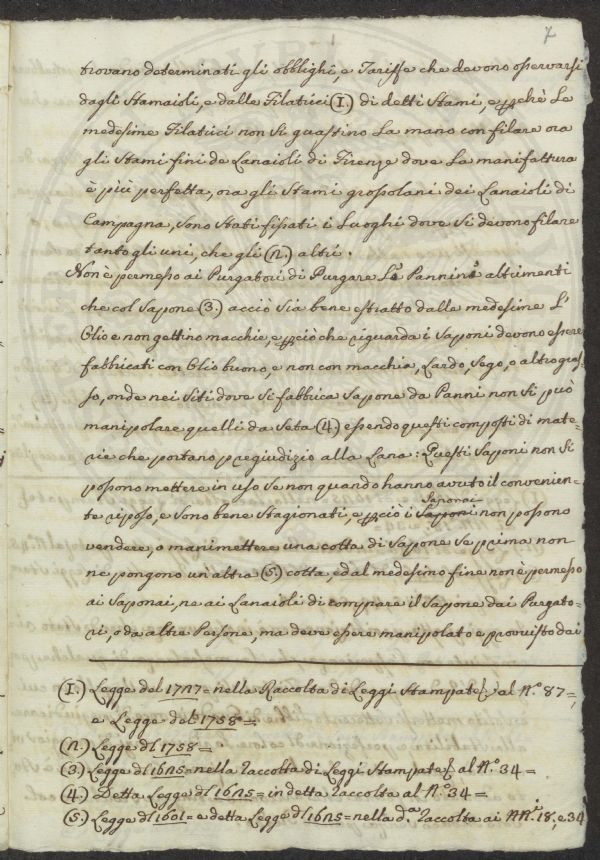 7
trovano determinati gli obblighi, e Tariffe che devono osservarsi
dagli Stamaioli, e dalle Filatrici (1.) di detti Stami, e pchè Le
medesime Filatrici non Si guastino La mano con filare ora
gli Stami fini de Lanaioli di Firenze dove La manifattura
è più perfetta, ora gli Stami grossolani dei Lanaioli di
Campagna, Sono Stati fissati i Luoghi dove Si devono filare
tanto gli uni, che gli (2.) altri.
Non è permesso ai Purgatori di Purgare Le Pannine altrimenti
che col Sapone (3.) acciò Sia bene estratto dalle medesime L'
Olio e non gettino macchie, e pciò che riguarda i Saponi devono essere
fabbricati con Olio buono, e non con macchia, Lardo, Sego, o altro gras-
so, onde nei Siti dove Si fabbrica Sapone da Panni non Si può
manipolare quelli da Seta (4.) essendo questi composti di mate-
rie che portano pregiudizio alla Lana: Questi Saponi non Si
possono mettere in uso Se non quando hanno avuto il convenien-
Saponai
te riposo, e Sono bene Stagionati, e pciò i Saponi non possono
vendere, o manimettere una cotta di Sapone Se prima non
ne pongono un'altra (5.) cotta, ed al medesimo fine non è permesso
ai Saponai, ne ai Lanaioli di comprare il Sapone dai Purgato-
ri, o da altre Persone, ma deve essere manipolato e provvisto dai
(1.) Legge del 1727 = nella Raccolta di Leggi Stampate al N.º 87 =,
e Legge del 1758 =.
(2.) Legge dl 1758 =.
(3.) Legge dl 1625 = nella raccolta di Leggi Stampate al N.º 34 =
(4.) Detta Legge dl 1625 = in detta raccolta al N.º 34 =
(5.) Legge dl 1601 = e detta Legge dl 1625 = nella d.ª raccolta ai NN.i 18, e 34